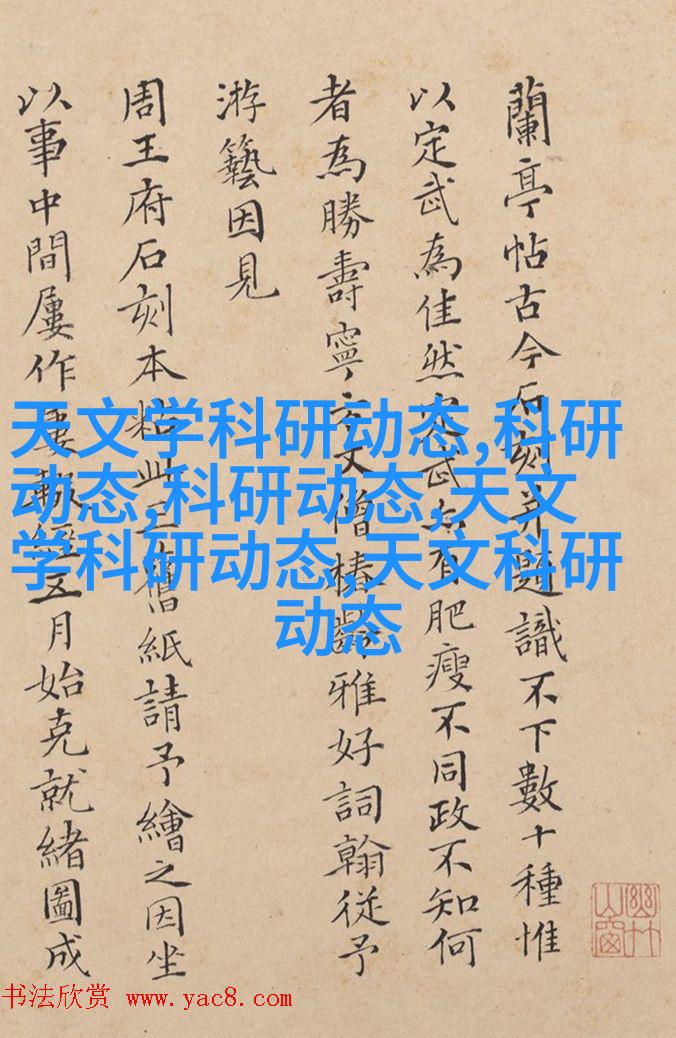 蘭亭帖古今石刻并題識不下數十種惟
以定武為佳然定武亦有肥瘦不同政不知何
者為勝壽寧方丈僧椿齡雅好詞翰從予
游藝因見
周王府石刻本粘此舊紙請予繪之因坐
以事中間屢作屢輟經五月始克就緒圖成
天文学科研动态,科研
动态,科研动态,天文
学科研动态,天文科研
动态
幽竹山窗
书法欣赏 www.yac8.com